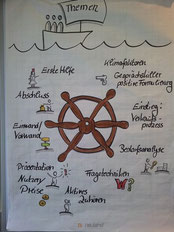 Themen
Klimafaktoren
Erste Hilfe
Gesprächskiller
positive Formulierung
Abschluss
Einstieg:
Verkaufs-
prozess
Einwand/
Vorwand
Bedarfsanalyse
Präsentation
Nutzen/
Preise
Fragetechniken
Aktives
Zuhören